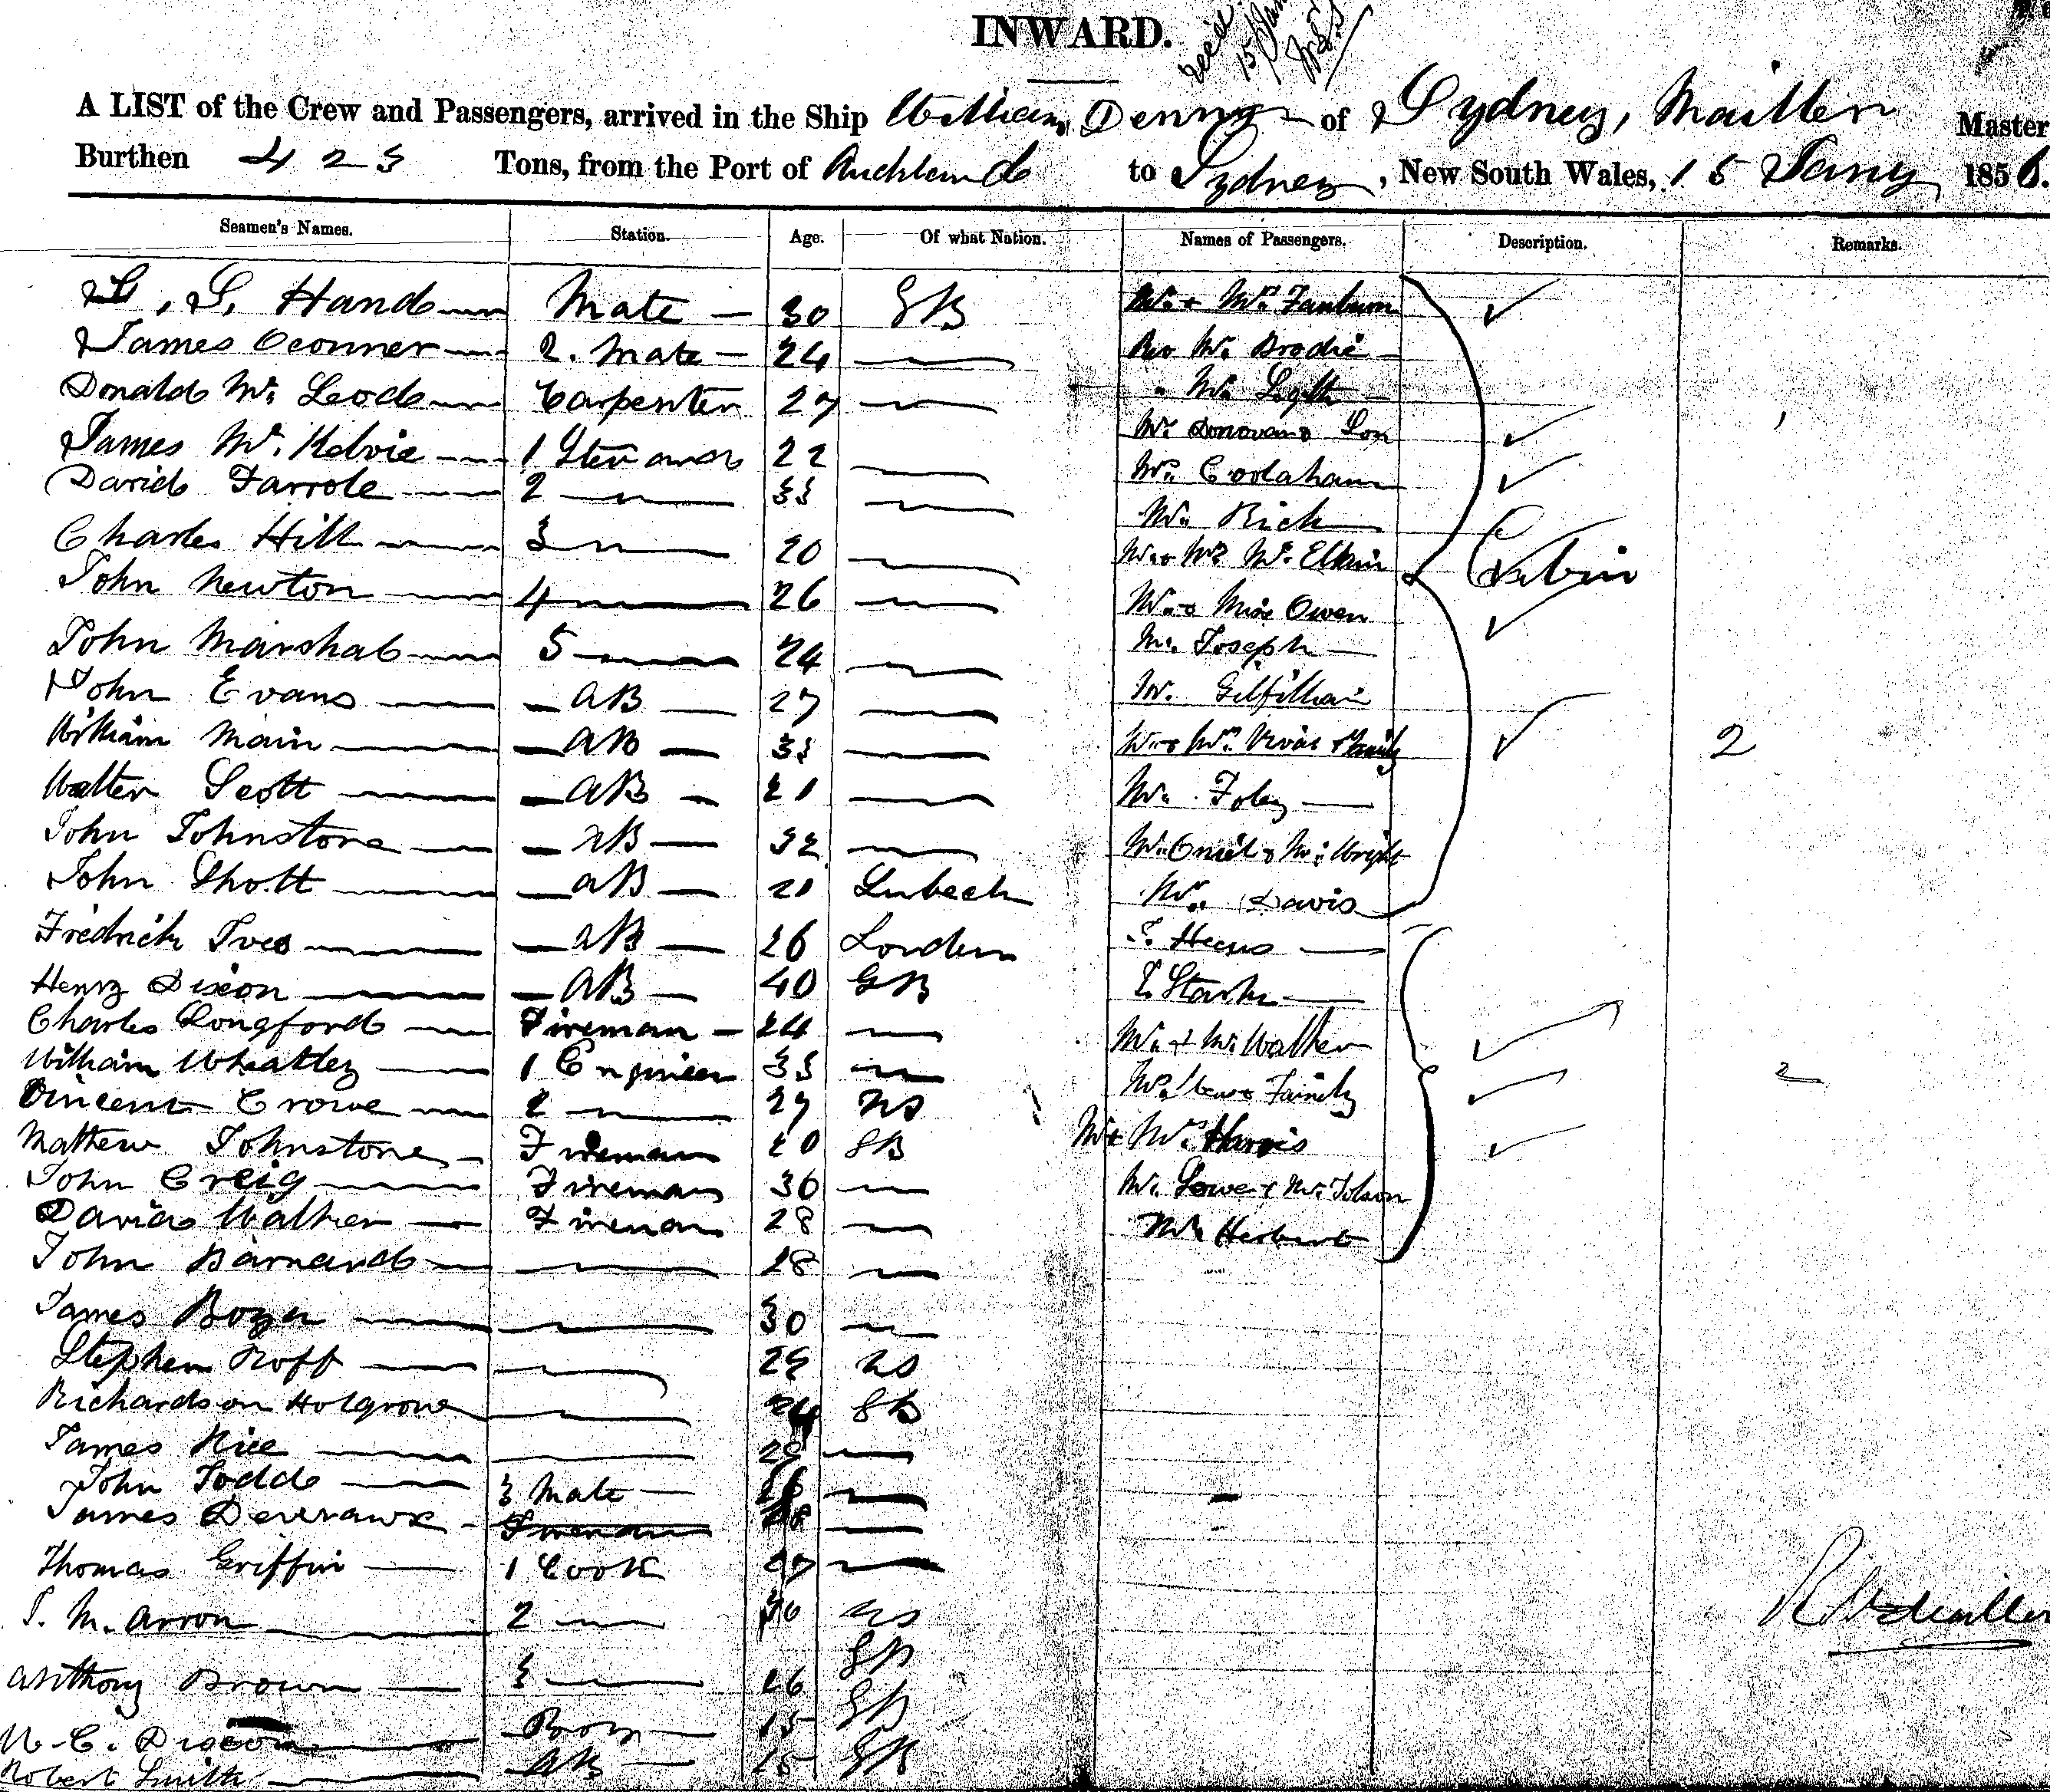 INWARD.
15/Jan
A LIST of the Crew and Passengers, arrived in the Ship William Denny of Sydney, Mailler Master
Burthen 423 Tons, from the Port of Auckland to Sydney, New South Wales, 15 Jany 1856.
Seamen's Names. Station. Age. Of what Nation. Names of Passengers. Description. Remarks.
S. Hand Mate 30 GB Mr. & Mrs.
James Oconner 2. Mate 24 Rev Mr. Brodie
Donald Mc. Leod Carpenter 27 " Mr.
James Mc. Kelvie 1 Steward 22 Mr. Donovan & Son
David Farrole 2 33 Mrs. Coolahan
Charles Hill 3 20 Mr. Rich
John Newton 4 26 Mr. & Mrs. Mc. Elkin Cabin
John Marshal 5 24 Mr. & Miss Owen
Mr. Joseph
John Evans AB 27 Mr. Gilfillan
William Main AB 33 Mr. & Mrs. & Family 2
Walter Scott AB 21 Mr. Foley
John Johnstone AB 32 Mr. Oneil & Mr. Wright
John Shott AB 21 Lubeck Mr. Davis
Fredrick Ives AB 26 London
Henry Dixon AB 40 GB Stark
Charles Longford Fireman 24 Mr. & Mrs. Walker
William Wheatley 1 Engineer 33 Mrs. & Family 2
Vincent Crowe 2 27 US
Mathew Johnstone Fireman 20 GB Mr & Mrs. Harris
John Creig Fireman 30 Mr. Lowe & Mr. Tolson
David Walker Fireman 28 Mr. Herbert
John Barnard 28
James Bozer 30
Stephen Roff 25 US
Richardson Holgrove 24 GB
James Rice 29
John Todd 3 Mate
James Fireman
Thomas Griffin 1 Cook 27
J. M. Arron 2 30 US
Anthony Brown 3 26 GB
W. C. Dixon Boy 15 GB
Robert Smith AB 15 GB